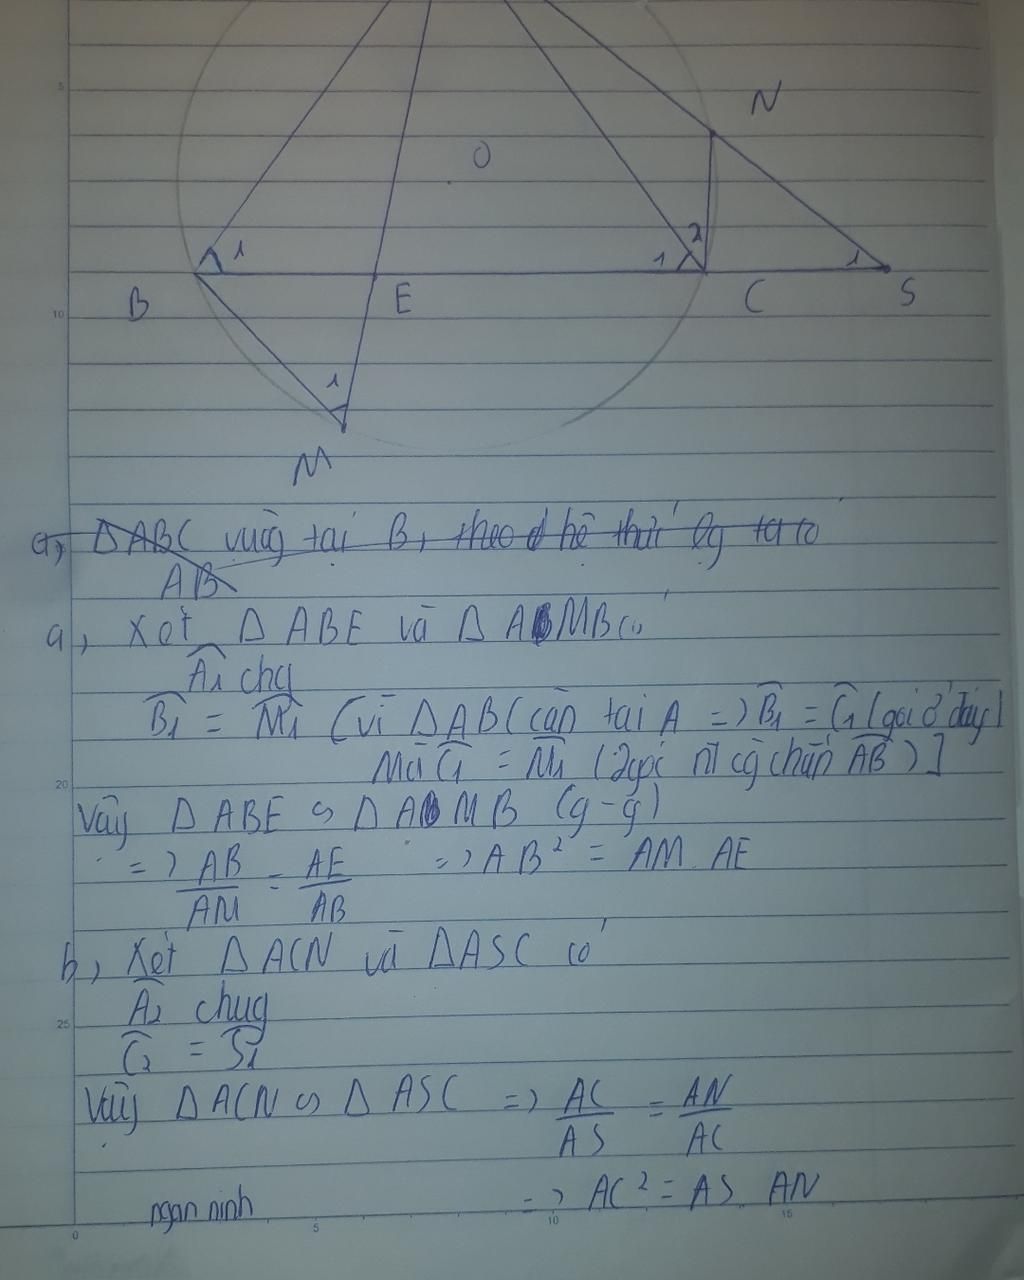 N
O
1
2
1
1
B
E
C
S
1
M
a, ΔABC vuôg tại B, theo hệ thức lg ta có
AB
a, Xét Δ ABE và Δ AMB có
A1 chg
B1 = M1 (vì ΔABC cân tại A => B1 = C1 (góc ở đáy)
Mà C1 = M1 (2góc nt cg chắn AB)]
Vậy Δ ABE ∽ Δ AMB (g-g)
=> AB/AM = AE/AB => AB² = AM. AE
b, Xét Δ ACN và ΔASC có
A2 chug
C2 = S1
Vậy Δ ACN ∽ Δ ASC => AC/AS = AN/AC
ngan ninh => AC² = AS AN
5
10
20
25
0
5
10
15